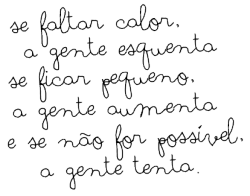 se faltar calor,
a gente esquenta
se ficar pequeno,
a gente aumenta
e se não for possível,
a gente tenta.